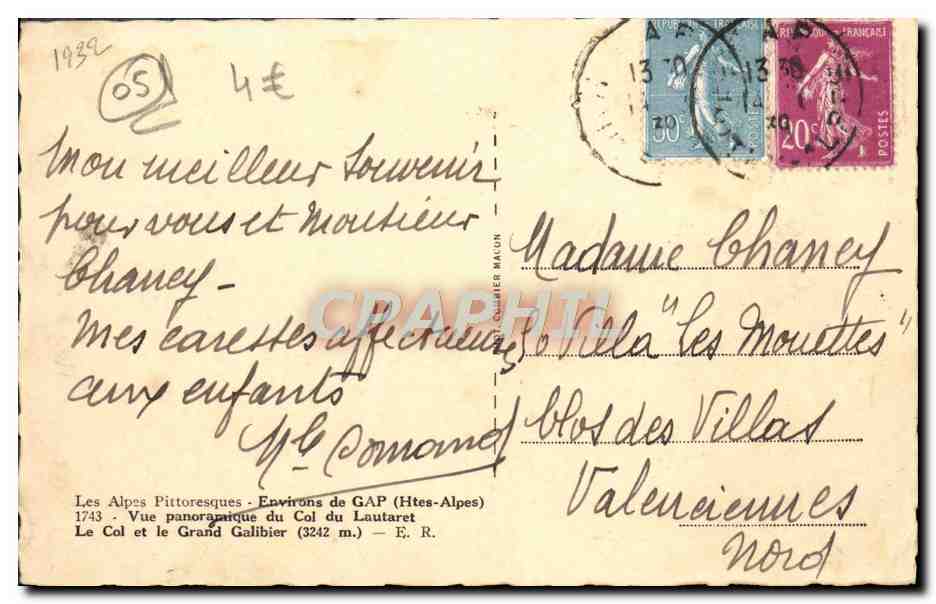 1932
05
4€
REPUBLIQUE FRANÇAISE
50c
POSTES
REPUBLIQUE FRANÇAISE
20c
POSTES
GAP
13 30
GAP
13 30
Mon meilleur souvenir
pour vous et Monsieur
Chaney -
Mes caresses affectueuses
aux enfants
Madame Chaney
Villa "Les Mouettes"
Clos des Villas
Valenciennes
Nord
COMBIER MACON
CRAPHIL
Les Alpes Pittoresques - Environs de GAP (Htes-Alpes)
1743 - Vue panoramique du Col du Lautaret
Le Col et le Grand Galibier (3242 m.) — E. R.